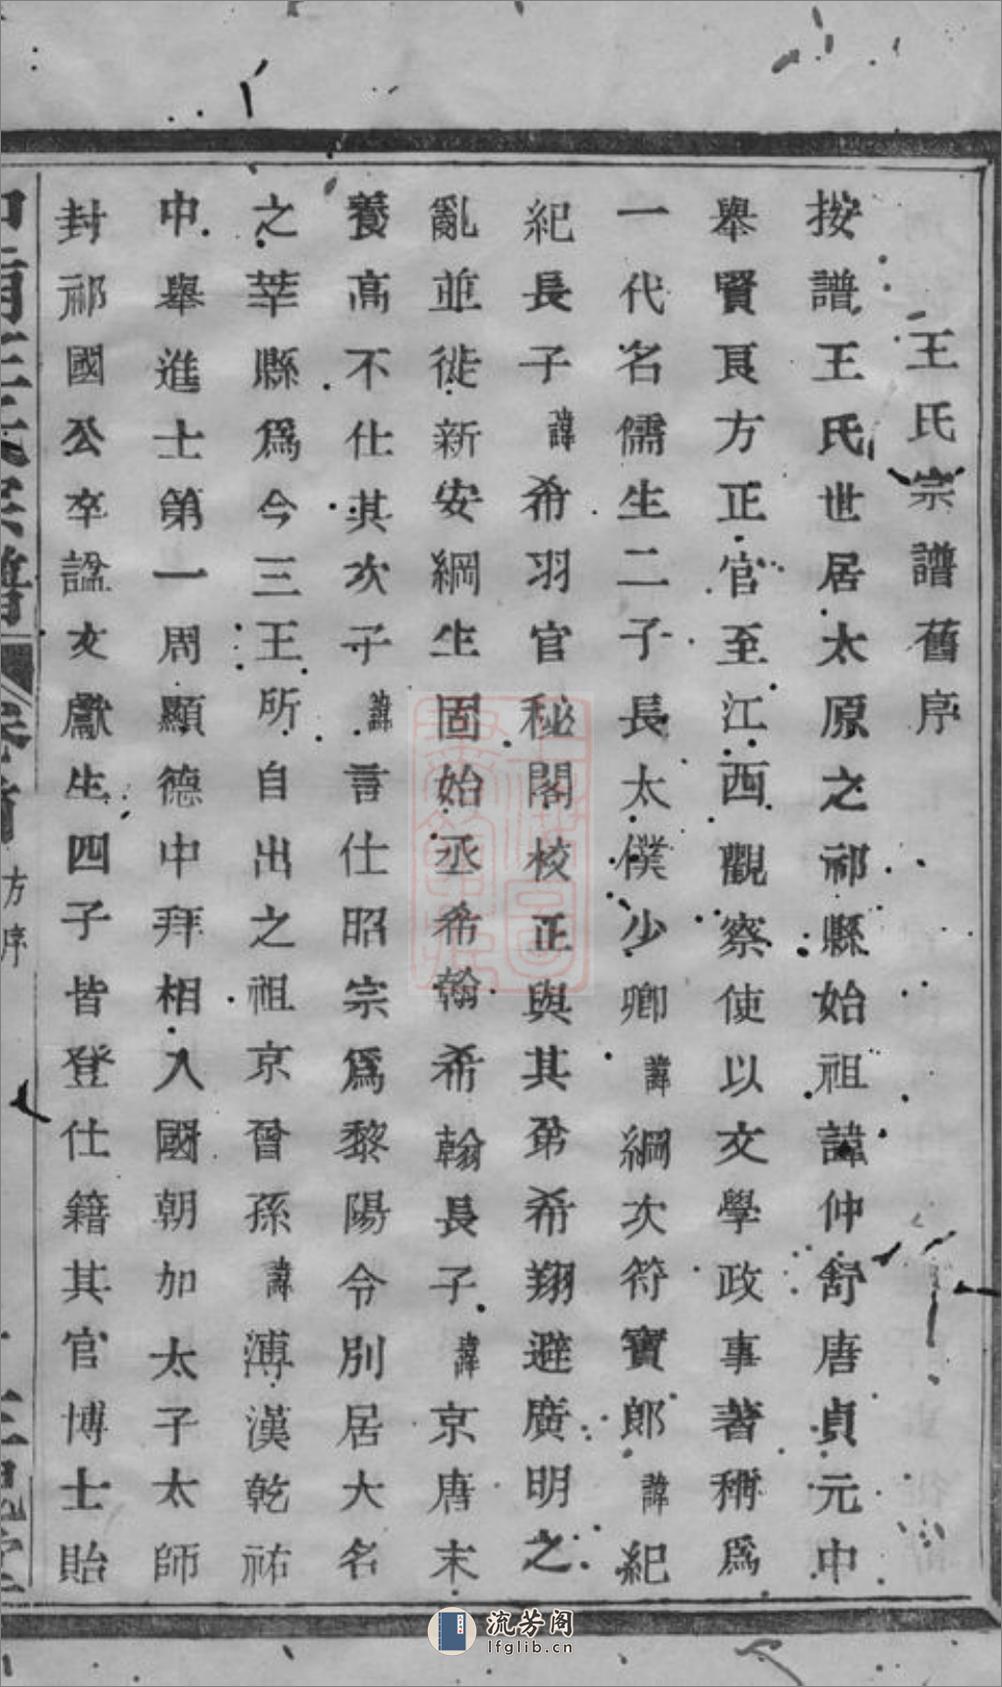 王氏宗譜舊序
按譜王氏世居太原之祁縣始祖諱仲舒唐貞元中
舉賢良方正官至江西觀察使以文學政事著稱爲
一代名儒生二子長太僕少卿諱綱次符寶郎諱紀
紀長子諱希羽官秘閣校正與其弟希翔避廣明之
亂並徙新安綱生固始丞希翰希翰長子諱京唐末
養高不仕其次子諱言仕昭宗爲黎陽令別居大名
之莘縣爲今三王所自出之祖京曾孫諱溥漢乾祐
中舉進士第一周顯德中拜相入國朝加太子太師
封祁國公卒諡文獻生四子皆登仕籍其官博士貽
王氏宗譜
方序
流芳阁
lfglib.cn